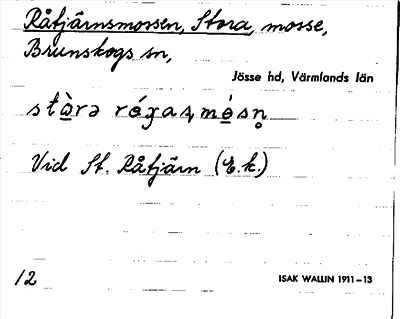 Råtjärnsmossen, Stora, mosse,
Brunskogs sn,
Jösse hd, Värmlands län
stὰrə
Vid St. Råtjärn (E.k.)
12
ISAK WALLIN 1911–13